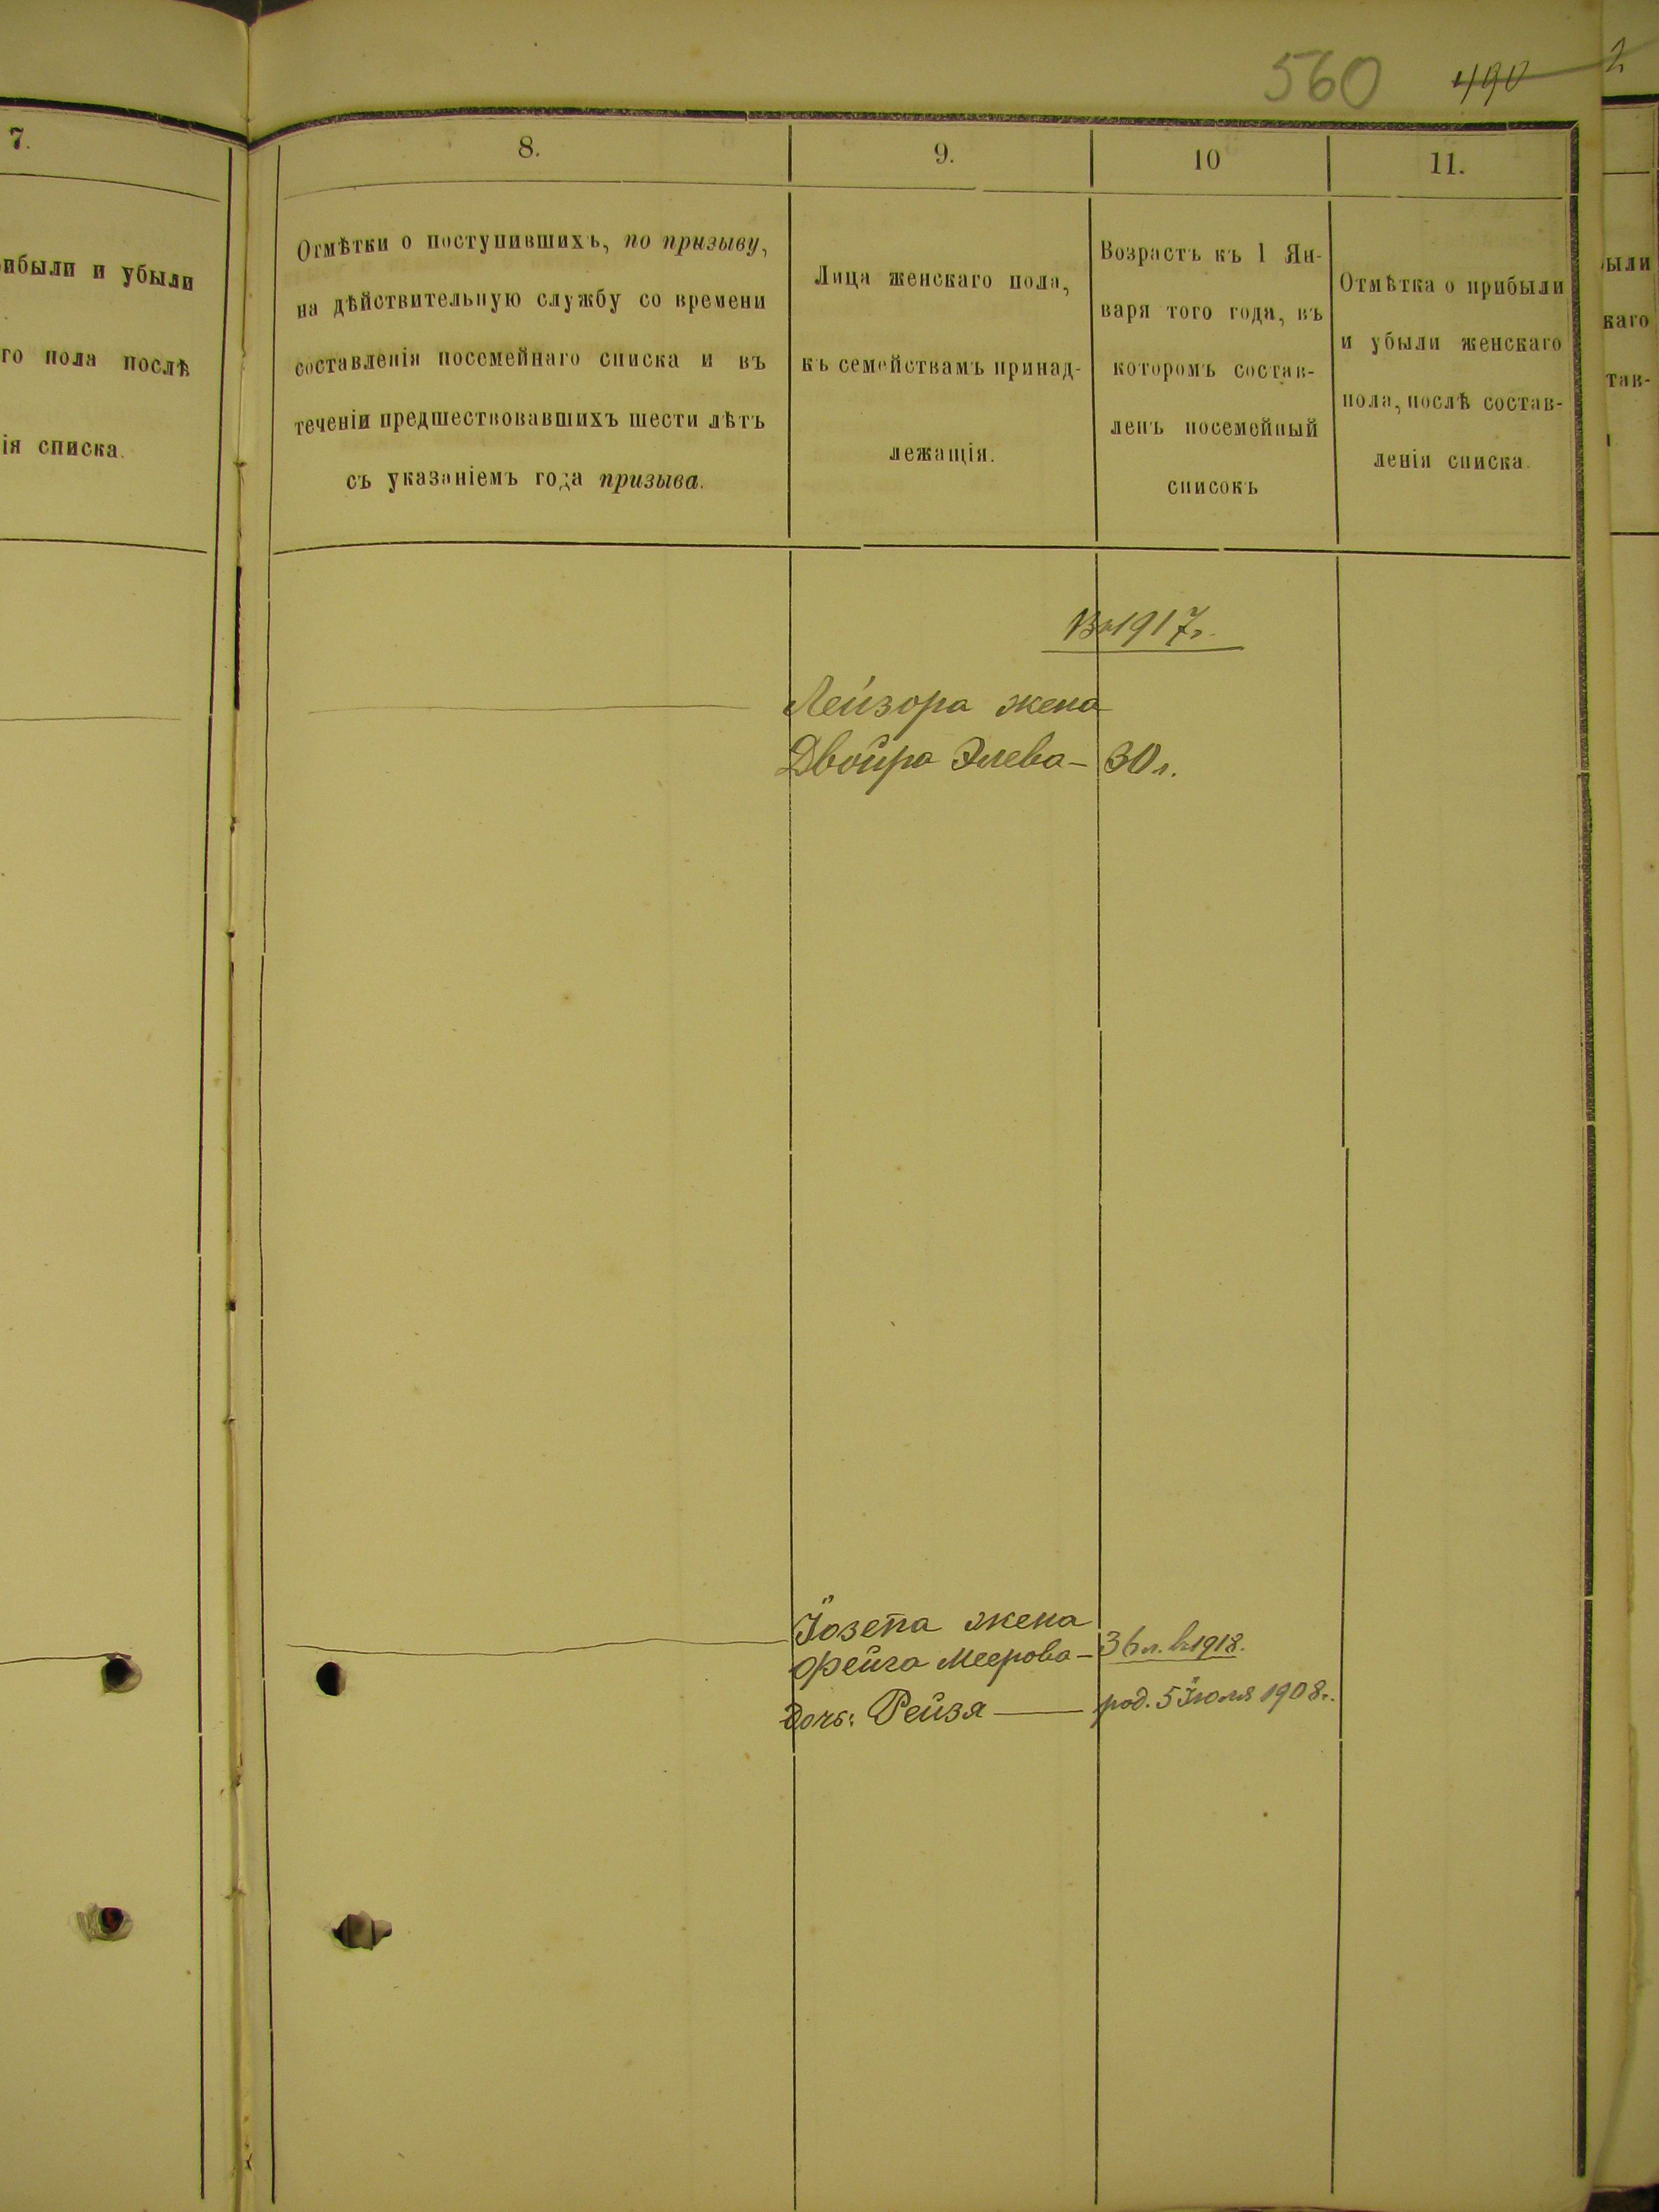 560 490
7.
8.
9.
10
11.
ибыли и убыли
го пола послѣ
ія списка.
Отмѣтки о поступившихъ, по призыву,
на дѣйствительную службу со времени
составленія посемейнаго списка и въ
теченіи предшествовавшихъ шести лѣтъ
съ указаніемъ года призыва.
Лица женскаго пола,
къ семействамъ принад-
лежащія.
Возрастъ къ 1 Ян-
варя того года, въ
которомъ состав-
ленъ посемейный
списокъ
Отмѣтка о прибыли
и убыли женскаго
пола, послѣ состав-
ленія списка.
ыли
каго
тав-
Въ 1917 г.
Лейзора жена
Двойра Элева - 30 л.
Іозепа жена
Фейга Меерова - 36 л. въ 1918.
Дочь: Рейзя — род. 5 Іюля 1908 г.